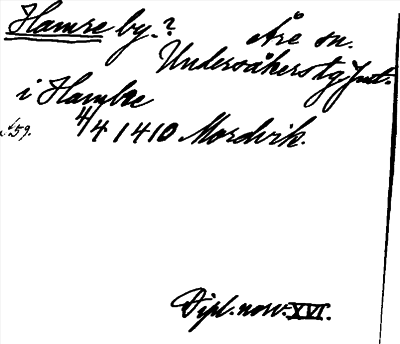 Hamre by. ?
Åre sn.
Undersåkers tg Jmt.
i Hambre
s. 59. 4/4 1410 Mordvik.
Dipl. norv. XVI.